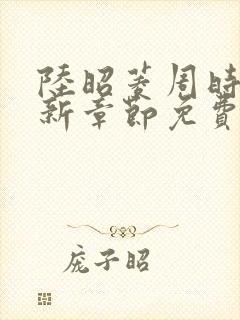 陸昭菱周時
新章節免費
龐子昭